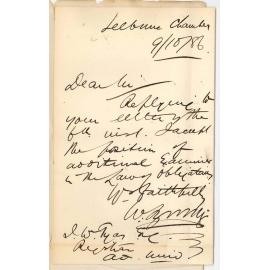 Selborne Chambers
9/10/86
Dear Sir
Replying to
your letter of the
6th inst. I accept
the position of
additional Examiner
in the Law of Obligations
Yrs faithfully
Registrar